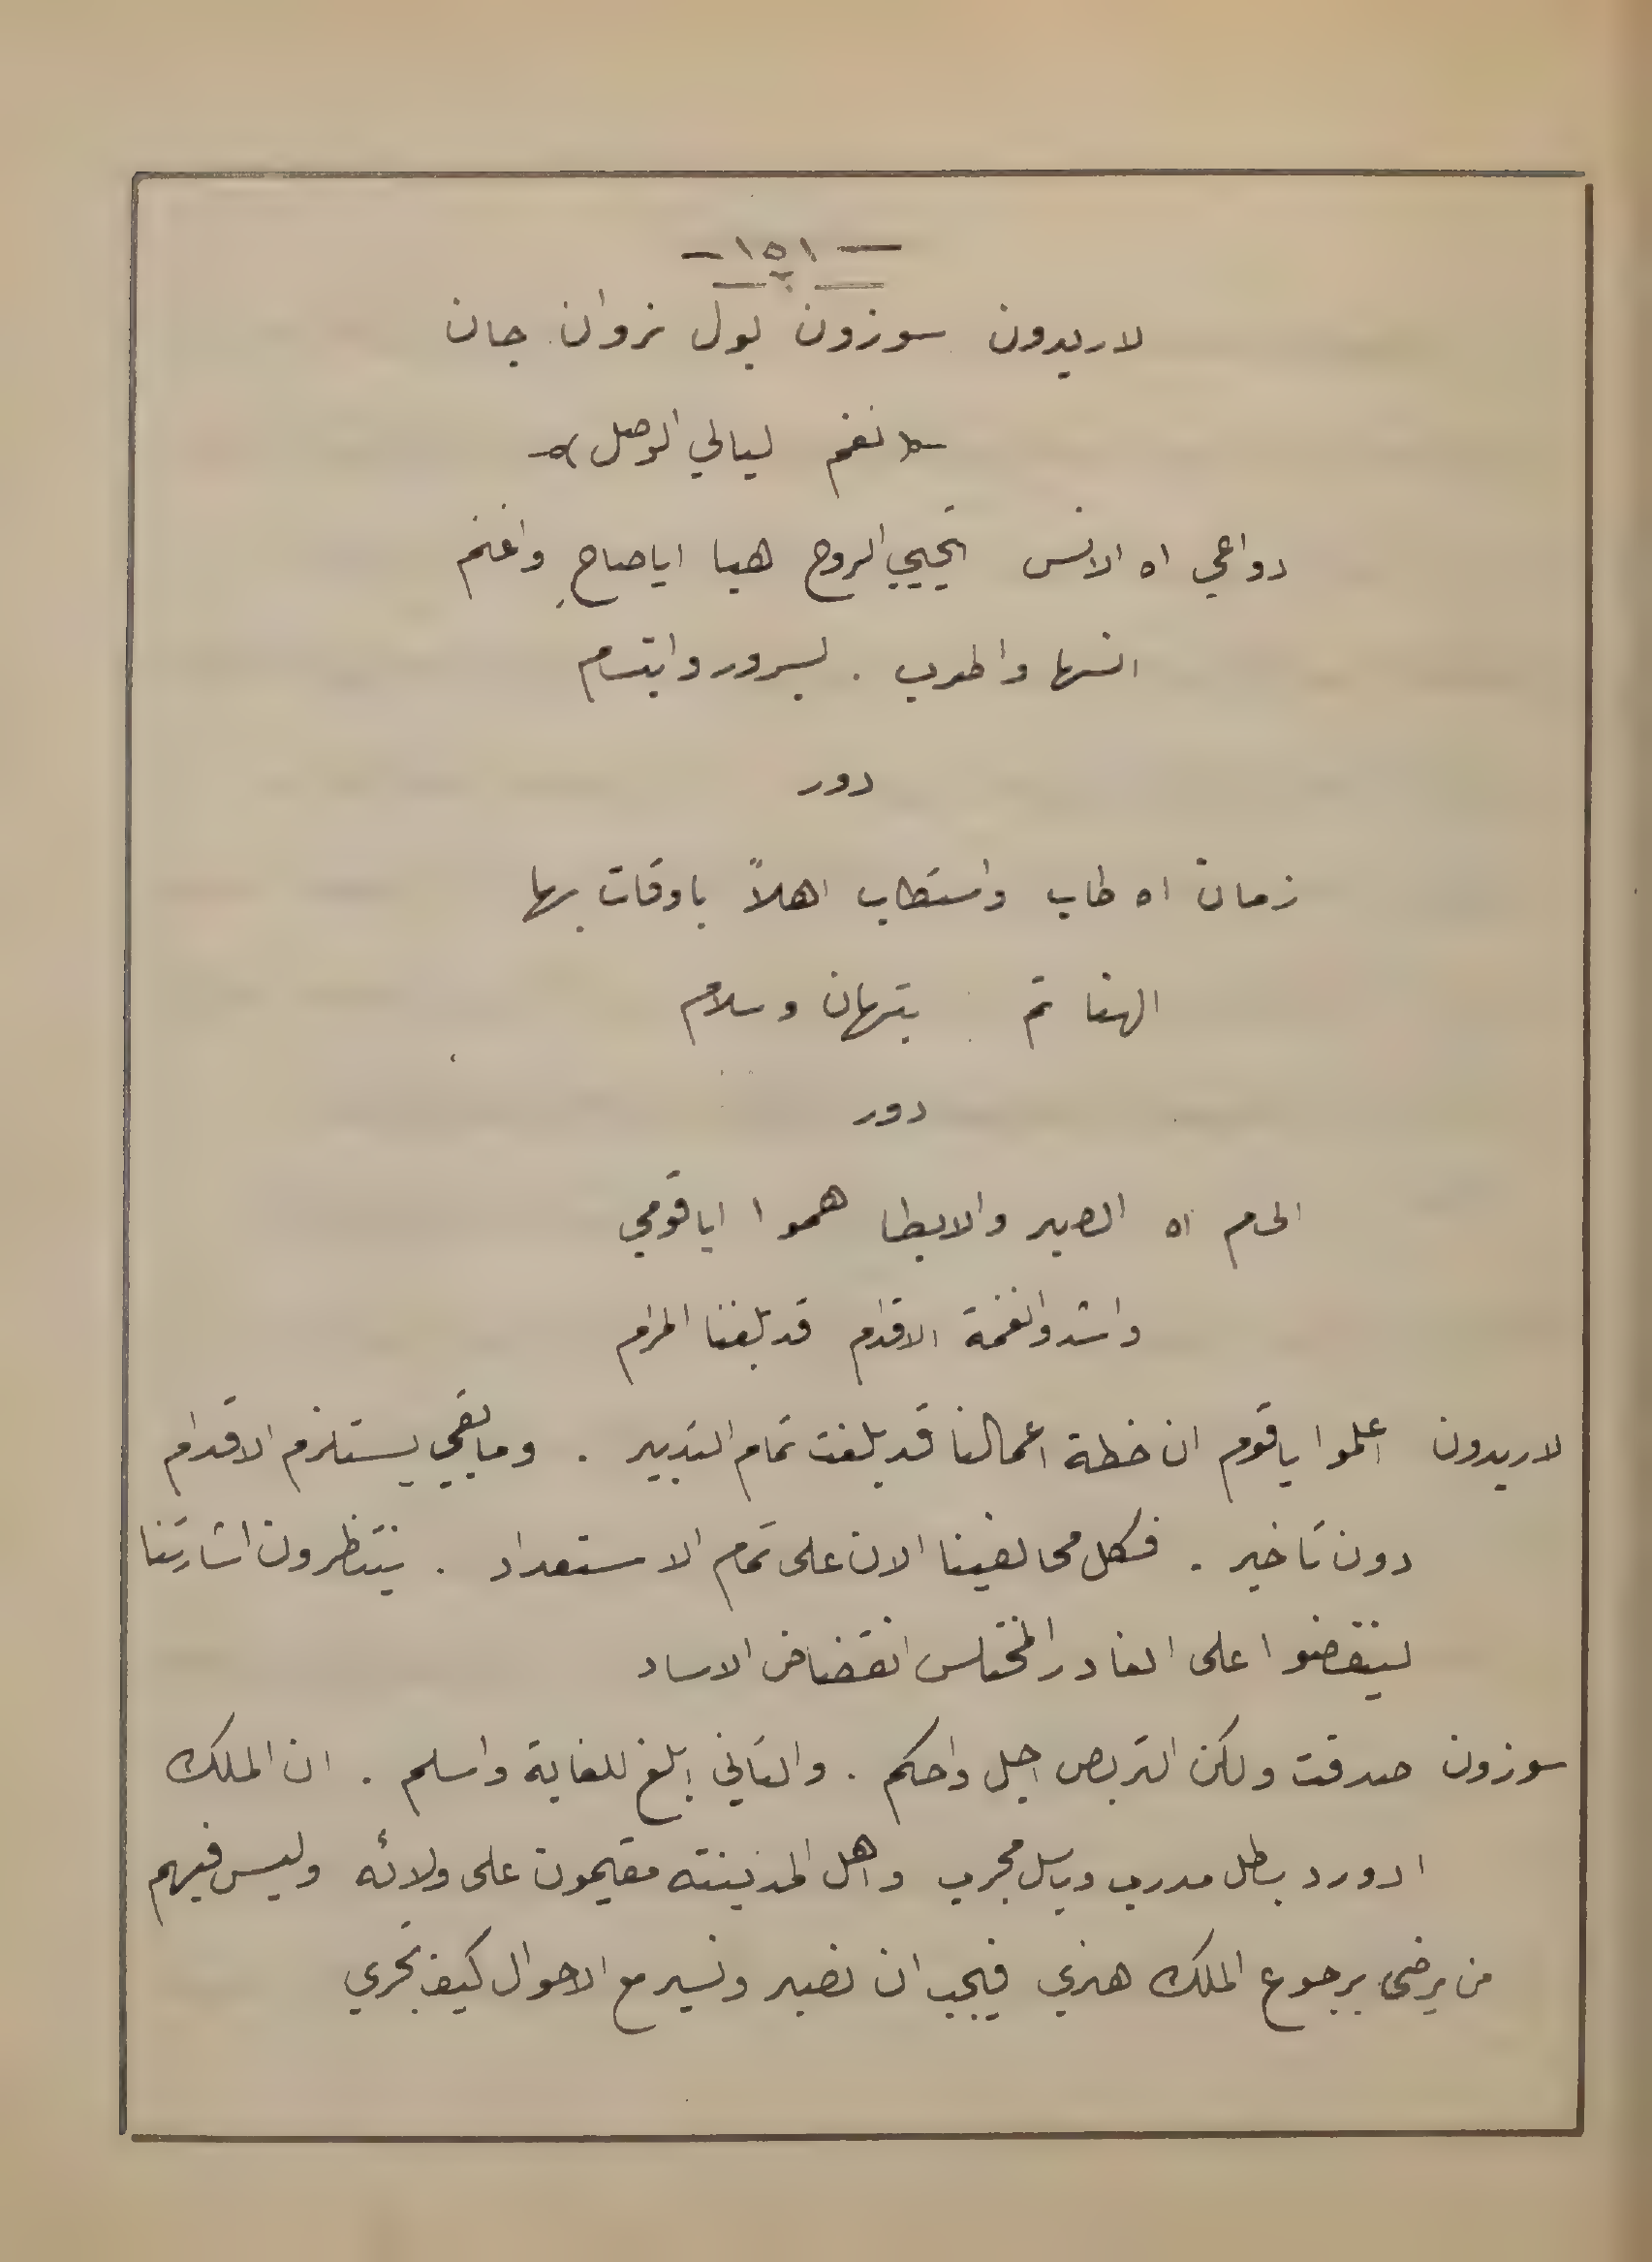 — ١٥١ —
لاريدون سوزون بول نروان جان
نغم ليالي الوصل
دواعي اه الانس تحيي الروح هيا اياصاحِ واغنم
انسها واطرب . بسرور وابتسام
دور
زمان اه طاب واستطاب اهلاً باوقات بها
الهنا تم بتهان وسلام
دور
الى م اه الصبر والابطا هموا اياقومي
واشدوا نغمة الاقدام قد بلغنا المرام
لاريدون اعلموا ياقوم ان خطة اعمالنا قد بلغت تمام التدبير . وما بقي يستلزم الاقدام
دون تاخير . فكل محالفينا الان على تمام الاستعداد . ينتظرون اشارتنا
لينقضوا على الغادر المختلس انقضاض الاساد
سوزون صدقت ولكن التربص اجل واحكم . والتاني ابلغ للغاية واسلم . ان الملك
ادورد بطل مدرب وباسل مجرب واهل المدينته مقيمون على ولائه وليس فيهم
من يرضى برجوع الملك هنري فيجب ان نصبر ونسير مع الاحوال كيف تجري